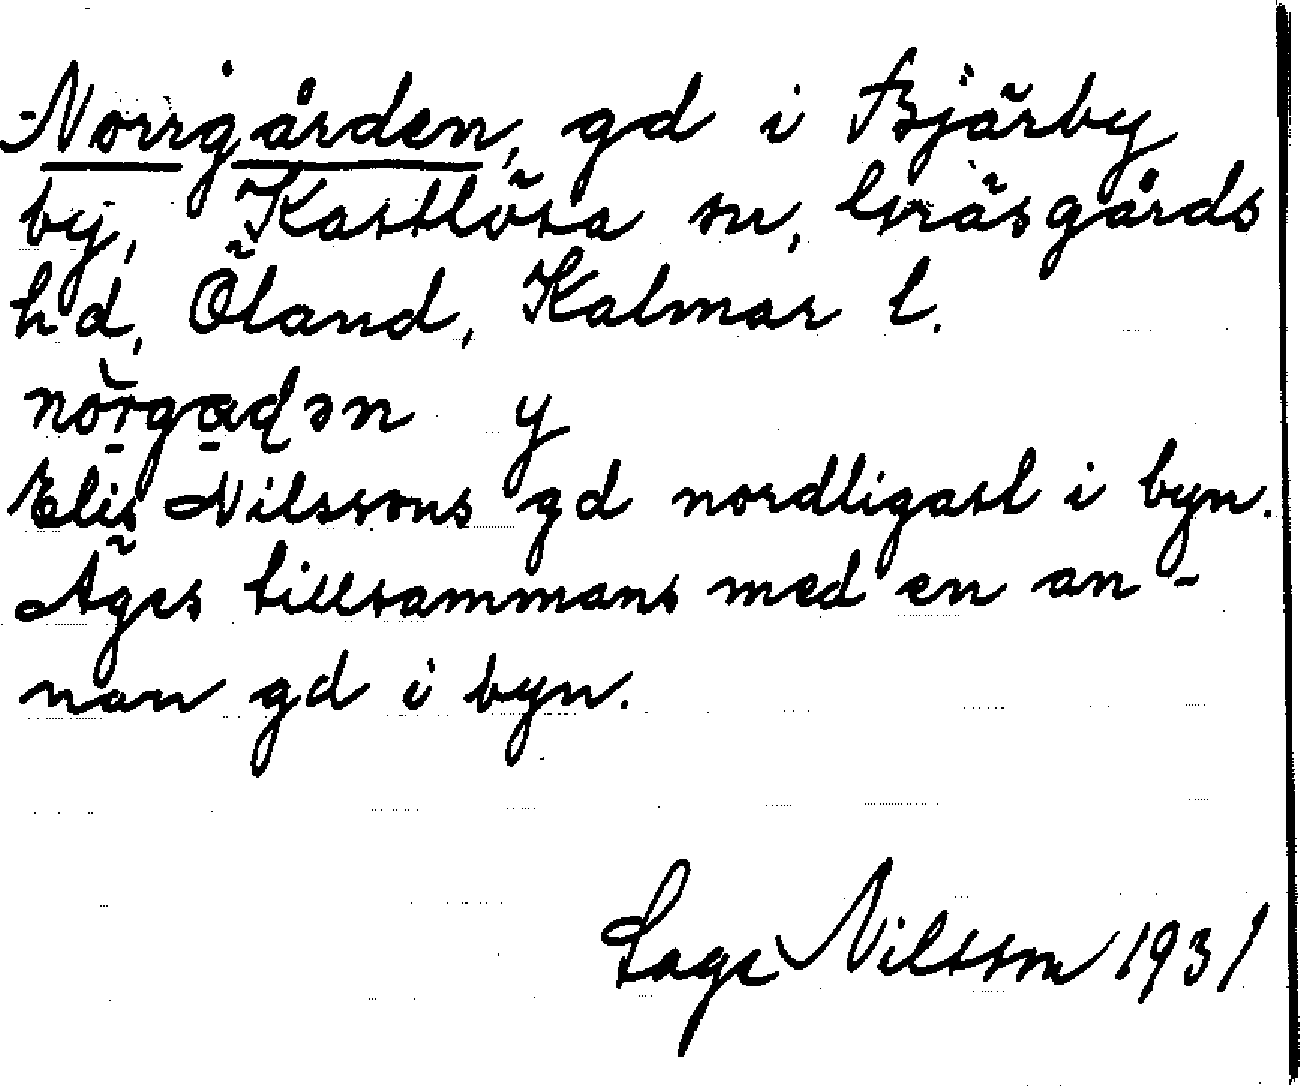 Norrgården, gd i Bjärby
by, Kastlösa sn, Gräsgårds
hd, Öland, Kalmar l.
nörgaḍən y
Elis Nilssons gd nordligast i byn.
Äges tillsammans med en an-
nan gd i byn.
Sage Nilsson 1931